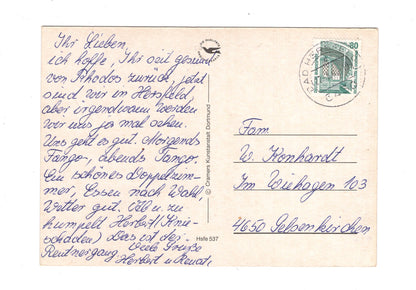 Ihr Lieben,
ich hoffe, Ihr seit gesund
von Rhodos zurück, jetzt
sind wir in Hersfeld,
aber irgendwann werden
wir uns ja mal sehen.
Uns geht es gut. Morgends
Fango-, abends Tango.
Ein schönes Doppelzim-
mer, Essen nach Wahl,
Wetter gut. Ab u. zu
humpelt Herbert (Knie-
schaden) Das ist der
Rentnergang. Viele Grüße
Herbert u. Renate
© Cramers Kunstanstalt Dortmund
Hsfe 537
80
BAD
Fam
W. Konhardt
Im Wiehagen 103
4650 Gelsenkirchen